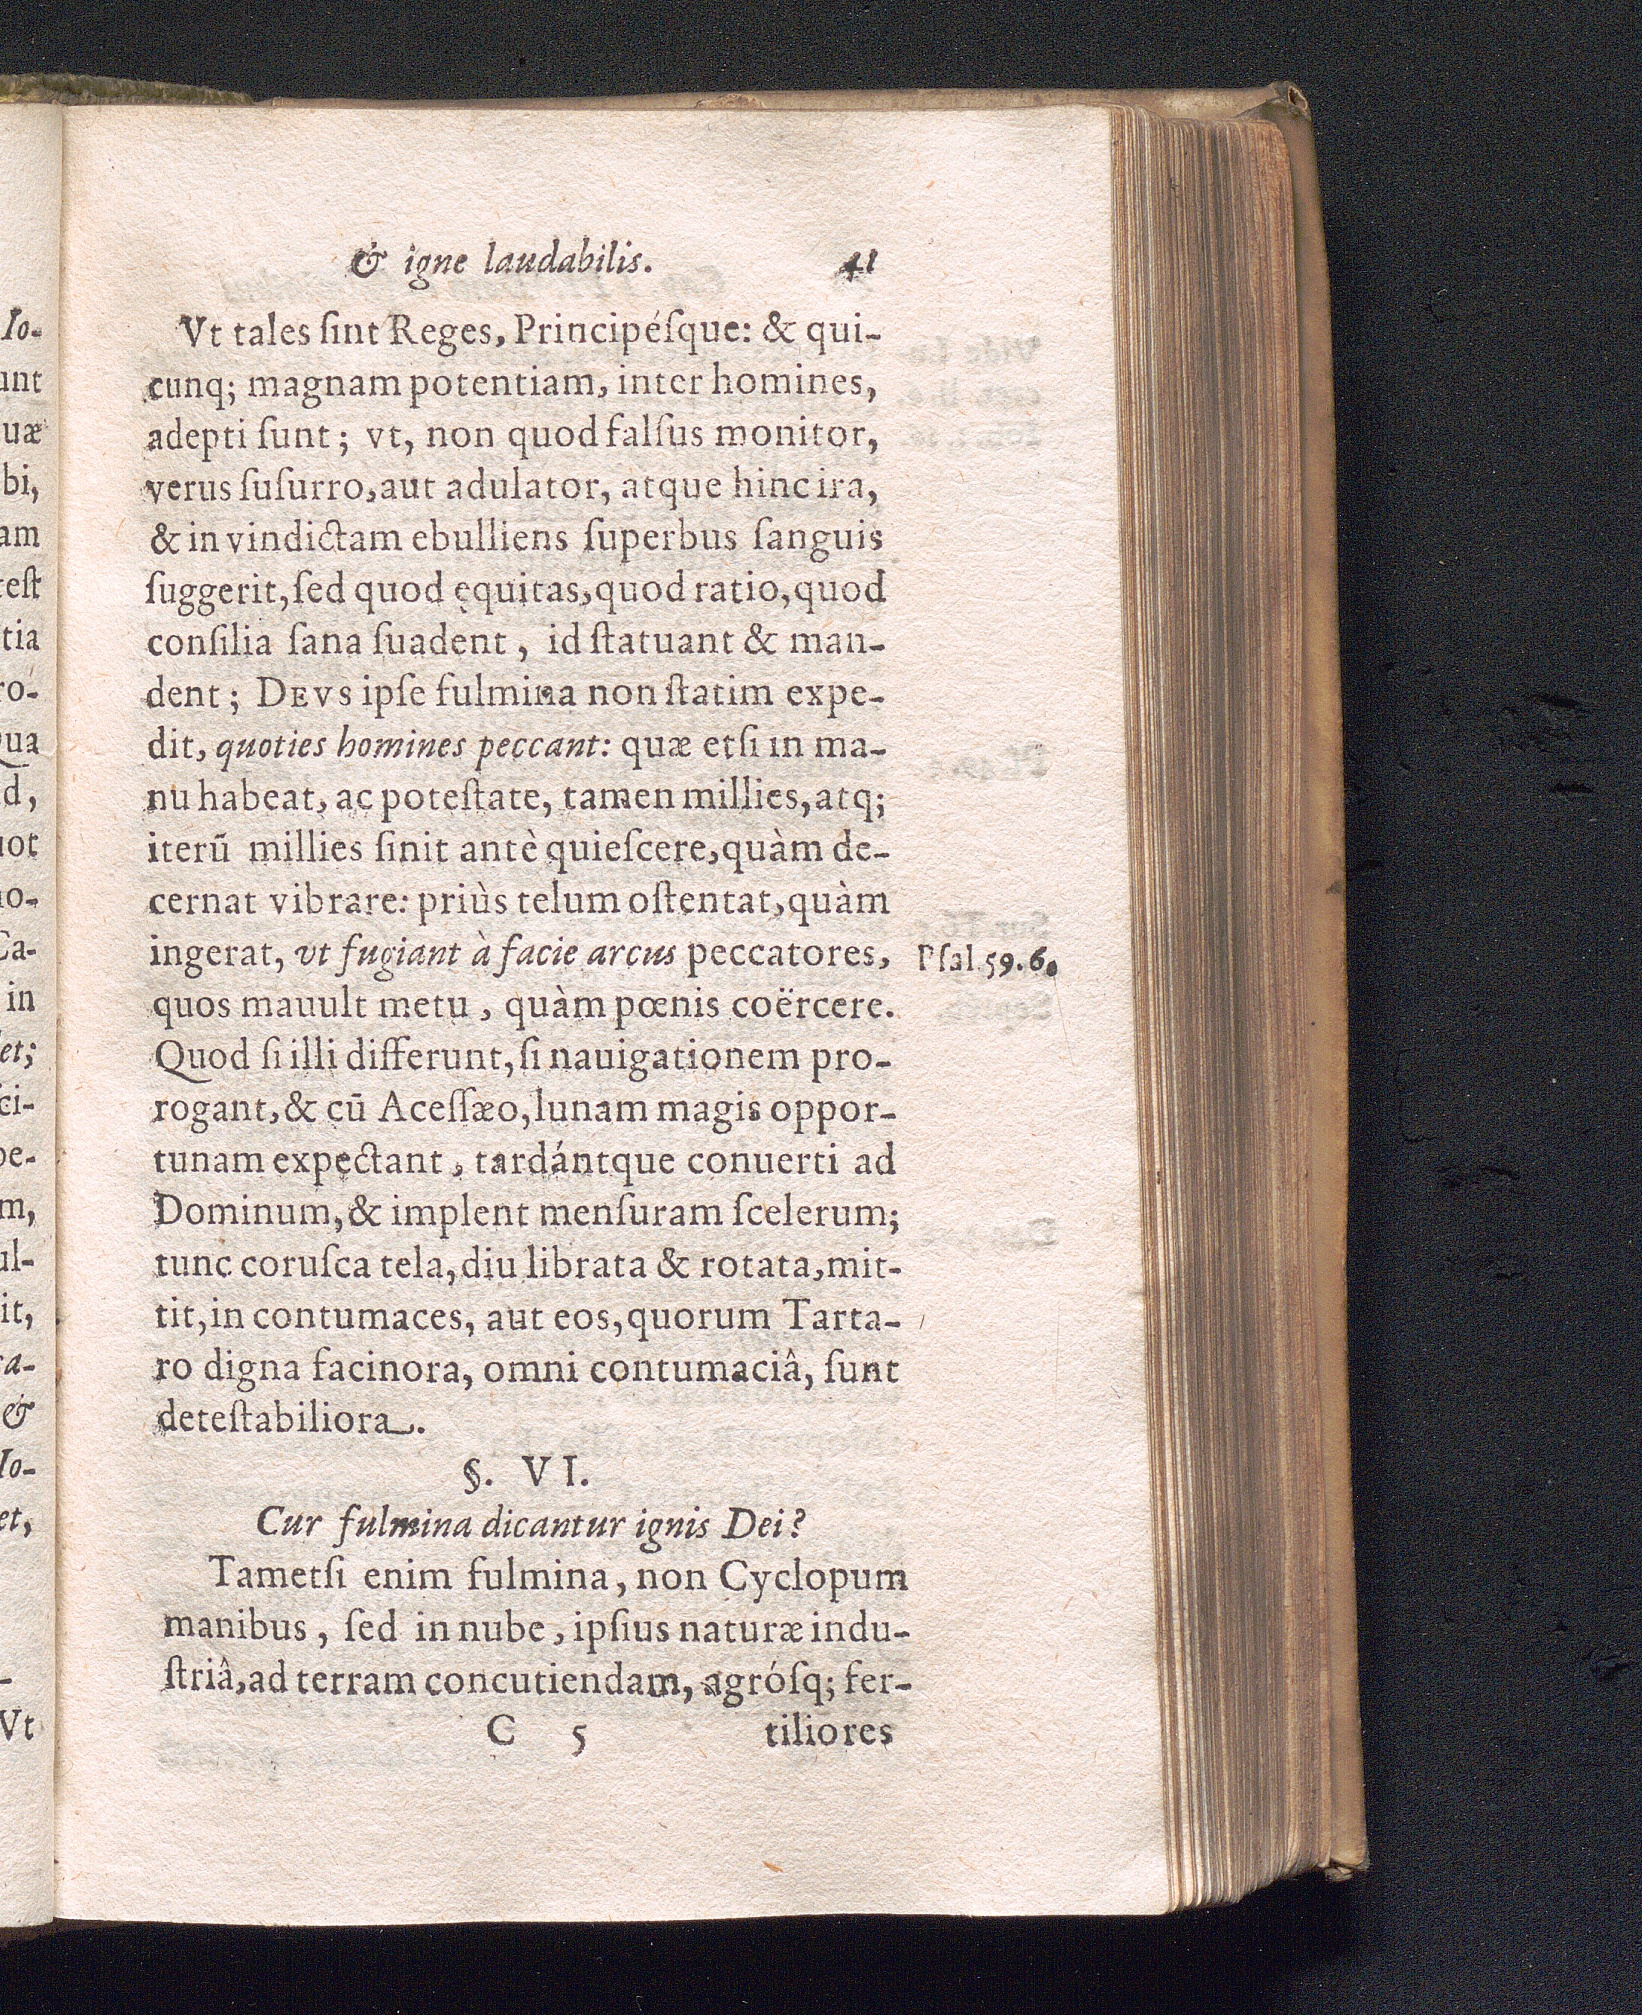 & igne laudabilis. 41
Vt tales ſint Reges, Principéſque: & qui-
cunq; magnam potentiam, inter homines,
adepti ſunt; vt, non quod falſus monitor,
verus ſuſurro, aut adulator, atque hinc ira,
& in vindictam ebulliens ſuperbus ſanguis
ſuggerit, ſed quod ęquitas, quod ratio, quod
conſilia ſana ſuadent, id ſtatuant & man-
dent; DEVS ipſe fulmina non ſtatim expe-
dit, quoties homines peccant: quæ etſi in ma-
nu habeat, ac poteſtate, tamen millies, atq;
iterū millies ſinit antè quieſcere, quàm de-
cernat vibrare: priùs telum oſtentat, quàm
ingerat, vt fugiant à facie arcus peccatores,
Pſal. 59. 6.
quos mauult metu, quàm pœnis coërcere.
Quod ſi illi differunt, ſi nauigationem pro-
rogant, & cū Aceſſæo, lunam magis oppor-
tunam expectant, tardántque conuerti ad
Dominum, & implent menſuram ſcelerum;
tunc coruſca tela, diu librata & rotata, mit-
tit, in contumaces, aut eos, quorum Tarta-
ro digna facinora, omni contumaciâ, ſunt
deteſtabiliora.
§. VI.
Cur fulmina dicantur ignis Dei?
Tametſi enim fulmina, non Cyclopum
manibus, ſed in nube, ipſius naturæ indu-
ſtriâ, ad terram concutiendam, agróſq; fer-
C 5 tiliores
Io-
unt
uæ
bi,
am
teſt
tia
ro-
Qua
d,
uot
no-
Ca-
in
et;
ci-
pe-
m,
ul-
it,
ra-
&
Io-
et,
Vt